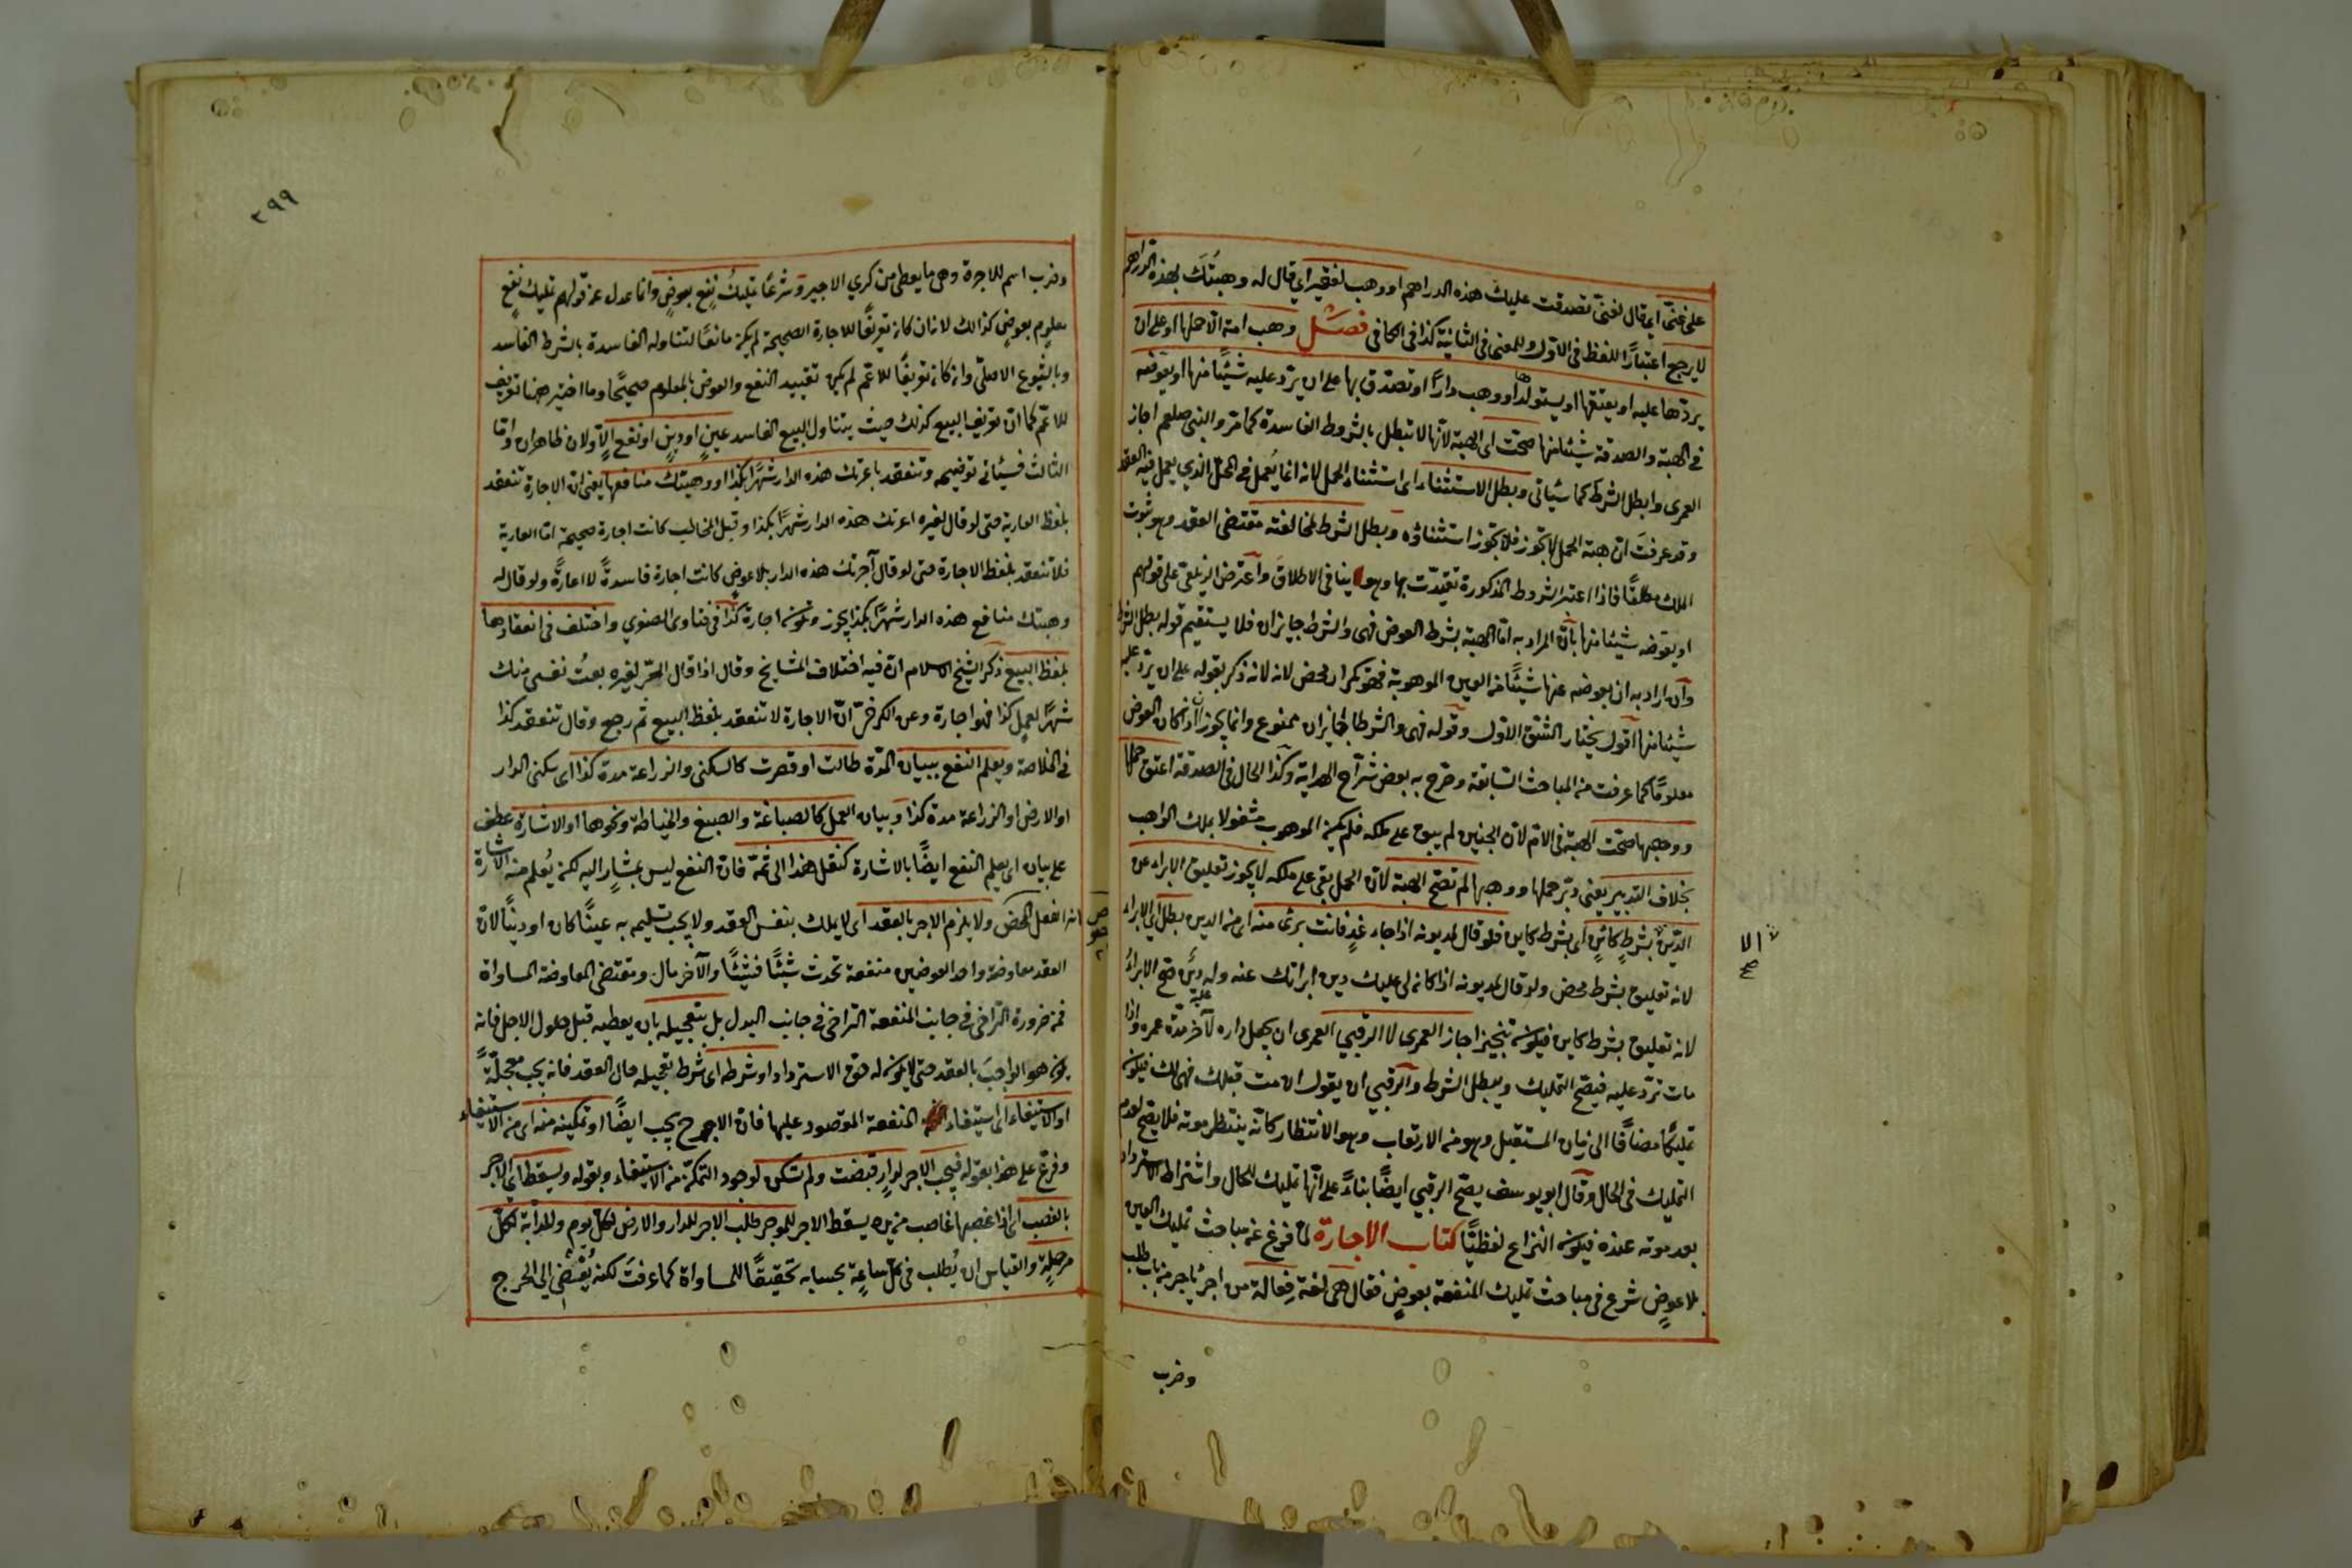 على غني اي قال لغني تصدقت عليك هذه الدراهم او وهب لفقير اي قال له وهبتك بهذه الدراهم
لا يرجع اعتبارًا للفظ في الاول وللمعنى في الثانية كذا في الكافي فصل وهب امة الا حملها او على ان
يردها عليه او يعتقها او يستولدها او وهب دارًا او تصدق بها على ان يرد عليه شيئًا منها او يعوضه
في الهبة والصدقة شيئا منها صحت اي الهبة لانها لا تبطل بالشروط الفاسدة كما مر والنبي صلعم اجاز
العمرى وابطل الشرط كما سيأتي وبطل الاستثناء اي استثناء الحمل لانه انما يعمل في المحل الذي يعمل فيه العقد
وقد عرفت ان هبة الحمل لا تجوز فلا يجوز استثناؤه وبطل الشرط لمخالفته مقتضى العقد وهو ثبوت
الملك مطلقًا فاذا اعتبر الشروط المذكورة تقيدت بها وهو ينافي الاطلاق واعترض الزيلعي على قولهم
او يعوضه شيئا منها بان المراد به اما الهبة بشرط العوض فهي والشرط جايزان فلا يستقيم قوله بطل الشرط
وان اراد به ان يعوضه عنها شيئًا من العين الموهوبة فهو تكرار محض لانه لانه ذكر بقوله على ان يرد عليه
شيئا منها اقول نختار الشق الاول وقوله فهي والشرط جايزان ممنوع وانما يجوزان اذا كان العوض
معلومًا كما عرفت من المباحث السابقة وصرح به بعض شراح الهداية وكذا الحال في الصدقة اعتق حملها
ووهبها صحت الهبة في الام لان الجنين لم يبق على ملكه فلم يكن الموهوب مشغولا بملك الواهب
بخلاف التدبير يعني دبر حملها ووهبها لم تصح الهبة لان الحمل بقي على ملكه لا يجوز تعليق الابراء عن
الدين بشرط كائن اي بشرط كاين فلو قال لمديونه اذا جاء غد فانت بريء منه اي من الدين بطل اي الابراء
الا
صح
لانه تعليق بشرط محض ولو قال لمديونه اذا كان لي عليك دين ابرأتك عنه وله عليه دين صح الابراء
لانه تعليق بشرط كاين فيكون تنجيز اجاز العمرى لا الرقبى العمرى ان يجعل داره لآخر مدة عمره واذا
مات ترد عليه فيصح التمليك ويبطل الشرط والرقبى ان يقول ان مت قبلك فهي لك فيكون
تمليكًا مضافًا الى زمان المستقبل وهو من الارتقاب وهو الانتظار كانه ينتظر موته فلا يصح لعدم
التمليك في الحال وقال ابو يوسف يصح الرقبى ايضًا بناءً على انها تمليك للحال واشتراط الاسترداد
بعد موته عنده فيكون النزاع لفظيًا كتاب الاجارة لما فرغ عن مباحث تمليك العين
بلا عوض شرع في مباحث تمليك المنفعة بعوض فقال هي لغة فعالة من اجر ياجر من باب طلب
وضرب
٢٩٩
وضرب اسم للاجرة وهي ما يعطى من كري الاجير وشرعًا تمليك نفع بعوض وانما عدل عن قولهم تمليك نفع
معلوم بعوض كذلك لانه ان كان تعريفًا للاجارة الصحيحة لم يكن مانعًا لتناوله الفاسدة بالشرط الفاسد
وبالشيوع الاصلي وان كان تعريفًا للاعم لم يكن تقييد النفع والعوض بالمعلوم صحيحًا وما اختير هنا تعريف
للاعم كما ان تعريف البيع كذلك حيث يتناول البيع الفاسد عين او دين او نفع الاولان ظاهران واما
الثالث فسيأتي توضيحه وتنعقد باعرتك هذه الدار شهرًا بكذا او وهبتك منافعها يعني ان الاجارة تنعقد
بلفظ العارية حتى لو قال لغيره اعرتك هذه الدار شهرًا بكذا وقبل المخاطب كانت اجارة صحيحة اما العارية
فلا تنعقد بلفظ الاجارة حتى لو قال آجرتك هذه الدار بلا عوض كانت اجارة فاسدةً لا اعارةً ولو قال له
وهبتك منافع هذه الدار شهرًا بكذا يجوز وتكون اجارة كذا في فتاوى الصغرى واختلف في انعقادها
بلفظ البيع ذكر الشيخ الاسلام ان فيه اختلاف المشايخ وقال اذا قال الحر لغيره بعت نفسي منك
شهرًا لعمل كذا فهو اجارة وعن الكرخي ان الاجارة لا تنعقد بلفظ البيع ثم رجع وقال تنعقد كذا
في الخلاصة ويعلم النفع ببيان المدة طالت او قصرت كالسكنى والزراعة مدة كذا اي سكنى الدار
او الارض او الزراعة مدة كذا وبيان العمل كالصباغة والصبغ والخياطة ونحوها او الاشارة عطف
على بيان اي يعلم النفع ايضًا بالاشارة كنقل هذا الى ثمة فان النفع ليس بمشار اليه لكنه يعلم من الاشارة
انه الفعل المحض ولا يلزم الاجر بالعقد اي لا يملك بنفس العقد ولا يجب تسليمه به عينًا كان او دينًا لان
العقد معاوضة واحد العوضين منفعة تحدث شيئًا فشيئًا والآخر مال ومقتضى المعاوضة المساواة
فمن ضرورة التراخي في جانب المنفعة التراخي في جانب البدل بل بتعجيله بان يعطيه قبل حلول الاجل فانه
يكون هو الواجب بالعقد حتى لا يكون له حق الاسترداد او شرطه اي شرط تعجيله حال العقد فانه يجب معجلةً
او الاستيفاء اي استيفاء المنفعة المقصود عليها فان الاجر ح يجب ايضًا او تمكينه منه اي من الاستيفاء
وفرع على هذا بقوله فيجب الاجر لدار قبضت ولم تسكن لوجود التمكن من الاستيفاء وبقوله ويسقط اي الاجر
بالغصب اي اذا غصبها غاصب من يده يسقط الاجر للموجر طلب الاجر للدار والارض لكل يوم وللدابة لكل
مرحلة والقياس ان يطلب في كل ساعة بحسابه تحقيقًا للمساواة كما عرفت لكنه يفضي الى الحرج